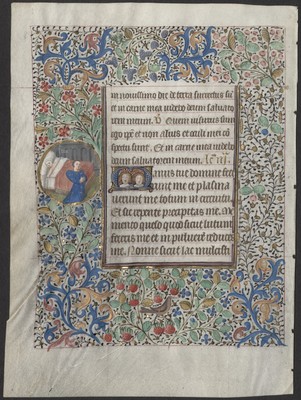 in novissimo die de terra surrectur⁹ sū
et in carne mea videbo deum salvato
rem meum. V̸ Quem visurus sum
ego ip̄e et non alius et oculi mei cō
specturi sunt. Et in carne mea videbo
deum salvatorem meum. Lc̄ iij.
Manus tue domine fece
runt me et plasma
verunt me totum in circuitu.
Et sic repente precipitas me. Me
mento queso quod sicut lutum
feceris me et in pulverem reduces
me. Nonne sicut lac mulsisti